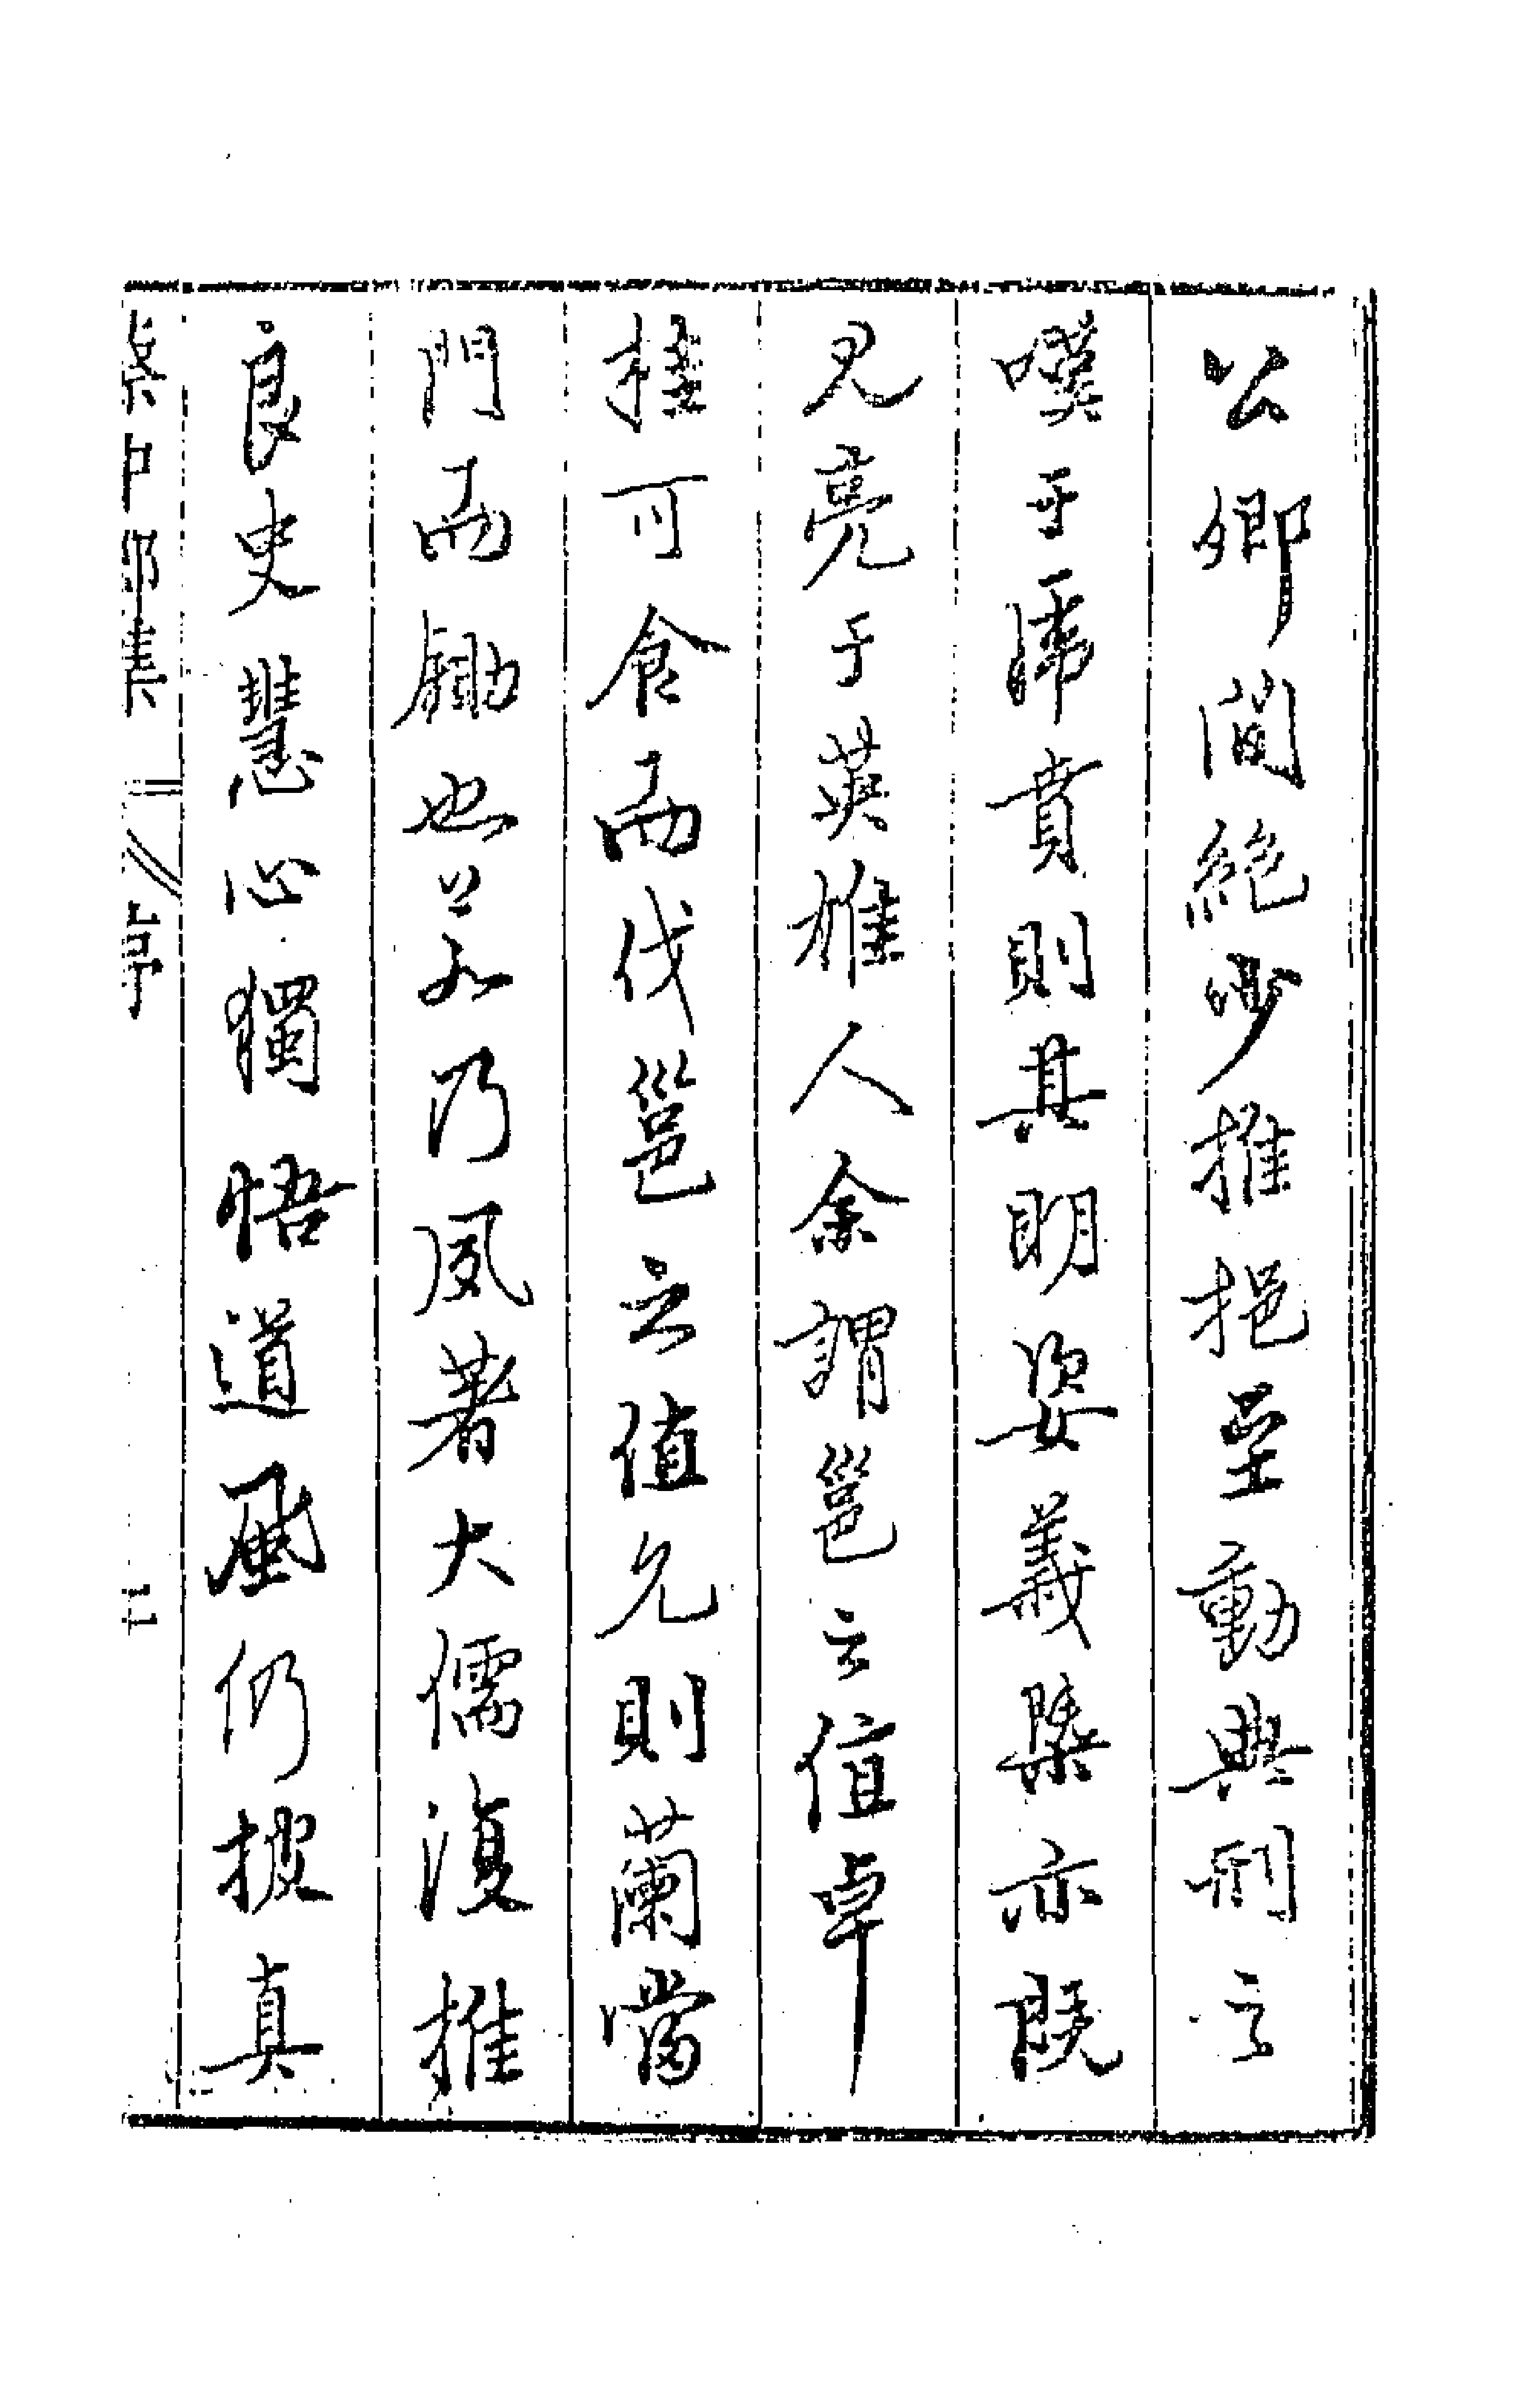 公卿間絕吵推挹至動興刑之
嘆于虎賁則其明姿義槩亦既
見亮于英雄人余謂邕之值卓
桂可食而伐邕之值允則蘭當
門而鋤也若乃夙著大儒復推
良史慧心獨悟道風仍披真
蔡中郎集
序
二